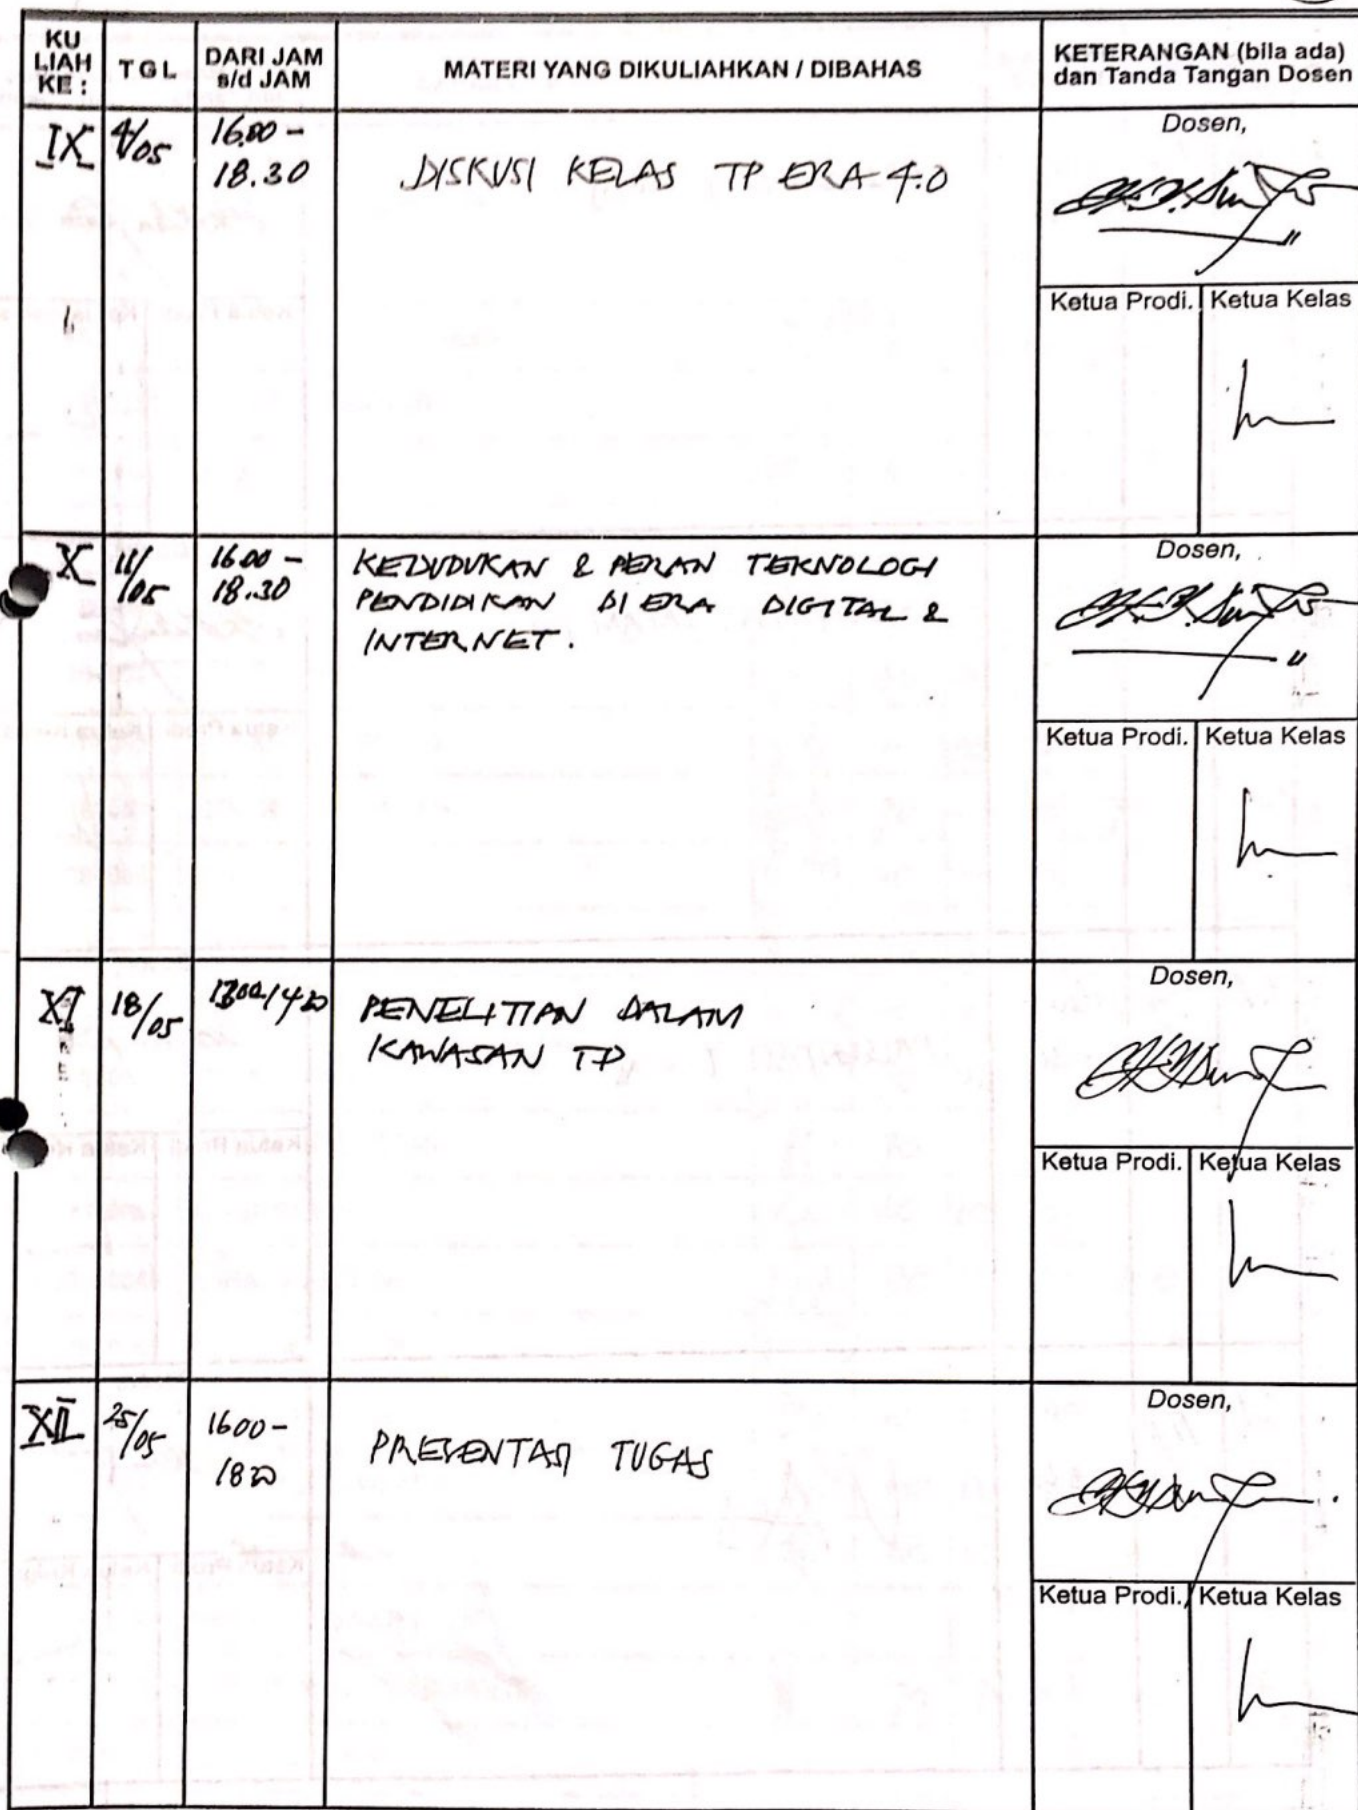 KU LIAH KE :
TGL
DARI JAM s/d JAM
MATERI YANG DIKULIAHKAN / DIBAHAS
KETERANGAN (bila ada)
dan Tanda Tangan Dosen
IX
4/05
16.00 -
18.30
DISKUSI KELAS TP ERA 4.0
Dosen,
Ketua Prodi.
Ketua Kelas
X
11/05
16.00 -
18.30
KEDUDUKAN & PERAN TEKNOLOGI
PENDIDIKAN DI ERA DIGITAL &
INTERNET.
Dosen,
Ketua Prodi.
Ketua Kelas
XI
18/05
PENELITIAN DALAM
KAWASAN TP
Dosen,
Ketua Prodi.
Ketua Kelas
XII
25/05
1600 -
PRESENTASI TUGAS
Dosen,
Ketua Prodi.
Ketua Kelas